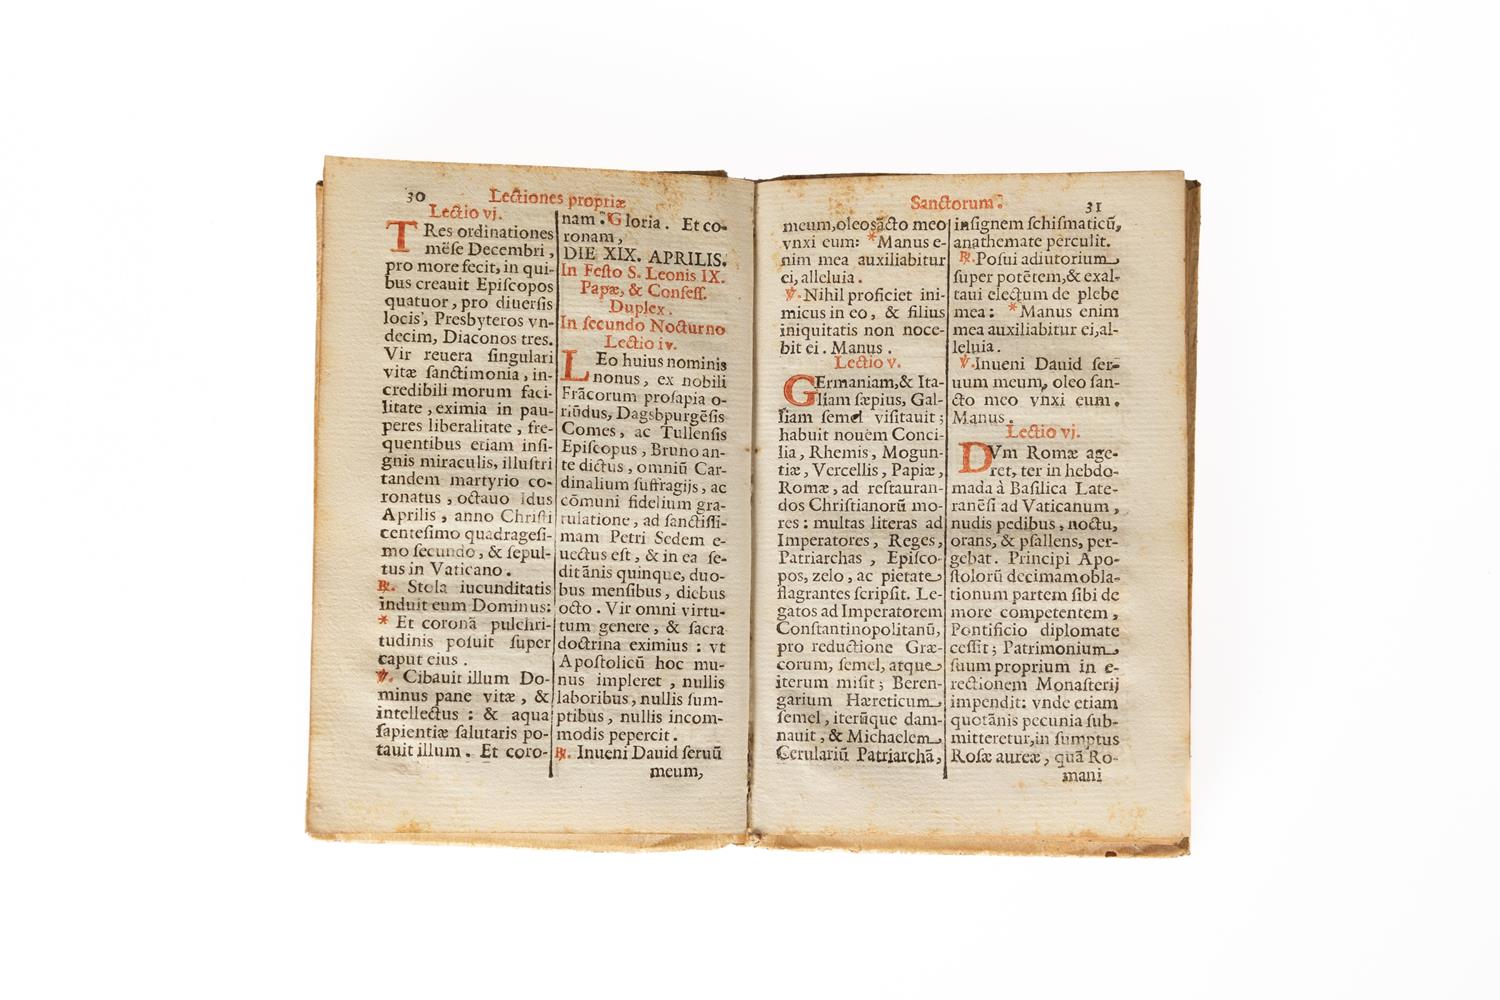 30 Lectiones propriæ
Lectio vj.
TRes ordinationes
mẽse Decembri,
pro more fecit, in qui-
bus creauit Episcopos
quatuor, pro diuersis
locis, Presbyteros vn-
decim, Diaconos tres.
Vir reuera singulari
vitæ sanctimonia, in-
credibili morum faci-
litate, eximia in pau-
peres liberalitate, fre-
quentibus etiam insi-
gnis miraculis, illustri
tandem martyrio co-
ronatus, octauo Idus
Aprilis, anno Christi
centesimo quadragesi-
mo secundo, & sepul-
tus in Vaticano.
℟. Stola iucunditatis
induit eum Dominus:
* Et coronã pulchri-
tudinis posuit super
caput eius.
℣. Cibauit illum Do-
minus pane vitæ, &
intellectus: & aqua
sapientiæ salutaris po-
tauit illum. Et coro-
nam. Gloria. Et co-
ronam,
DIE XIX. APRILIS.
In Festo S. Leonis IX.
Papæ, & Confess.
Duplex.
In secundo Nocturno
Lectio iv.
LEo huius nominis
nonus, ex nobili
Frãcorum prosapia o-
riũdus, Dagsbpurgẽsis
Comes, ac Tullensis
Episcopus, Bruno an-
te dictus, omniũ Car-
dinalium suffragijs, ac
cõmuni fidelium gra-
tulatione, ad sanctissi-
mam Petri Sedem e-
uectus est, & in ea se-
dit ãnis quinque, duo-
bus mensibus, diebus
octo. Vir omni virtu-
tum genere, & sacra
doctrina eximius: vt
Apostolicũ hoc mu-
nus impleret, nullis
laboribus, nullis sum-
ptibus, nullis incom-
modis pepercit.
℟. Inueni Dauid seruũ
meum,
Sanctorum. 31
meum, oleo sãcto meo
vnxi eum: *Manus e-
nim mea auxiliabitur
ei, alleluia.
℣. Nihil proficiet ini-
micus in eo, & filius
iniquitatis non noce-
bit ei. Manus.
Lectio v.
GErmaniam, & Ita-
liam sæpius, Gal-
liam semel visitauit;
habuit nouem Conci-
lia, Rhemis, Mogun-
tiæ, Vercellis, Papiæ,
Romæ, ad restauran-
dos Christianorũ mo-
res: multas literas ad
Imperatores, Reges,
Patriarchas, Episco-
pos, zelo, ac pietate
flagrantes scripsit. Le-
gatos ad Imperatorem
Constantinopolitanũ,
pro reductione Græ-
corum, semel, atque
iterum misit; Beren-
garium Hæreticum
semel, iterũque dam-
nauit, & Michaelem
Cerulariũ Patriarchã,
insignem schismaticũ,
anathemate perculit.
℟. Posui adiutorium
super potẽtem, & exal-
taui electum de plebe
mea: *Manus enim
mea auxiliabitur ei, al-
leluia.
℣. Inueni Dauid ser-
uum meum, oleo san-
cto meo vnxi eum.
Manus.
Lectio vj.
DVm Romæ age-
ret, ter in hebdo-
mada à Basilica Late-
ranẽsi ad Vaticanum,
nudis pedibus, noctu,
orans, & psallens, per-
gebat. Principi Apo-
stolorũ decimam obla-
tionum partem sibi de
more competentem,
Pontificio diplomate
cessit; Patrimonium
suum proprium in e-
rectionem Monasterij
impendit: vnde etiam
quotãnis pecunia sub-
mitteretur, in sumptus
Rosæ aureæ, quã Ro-
mani